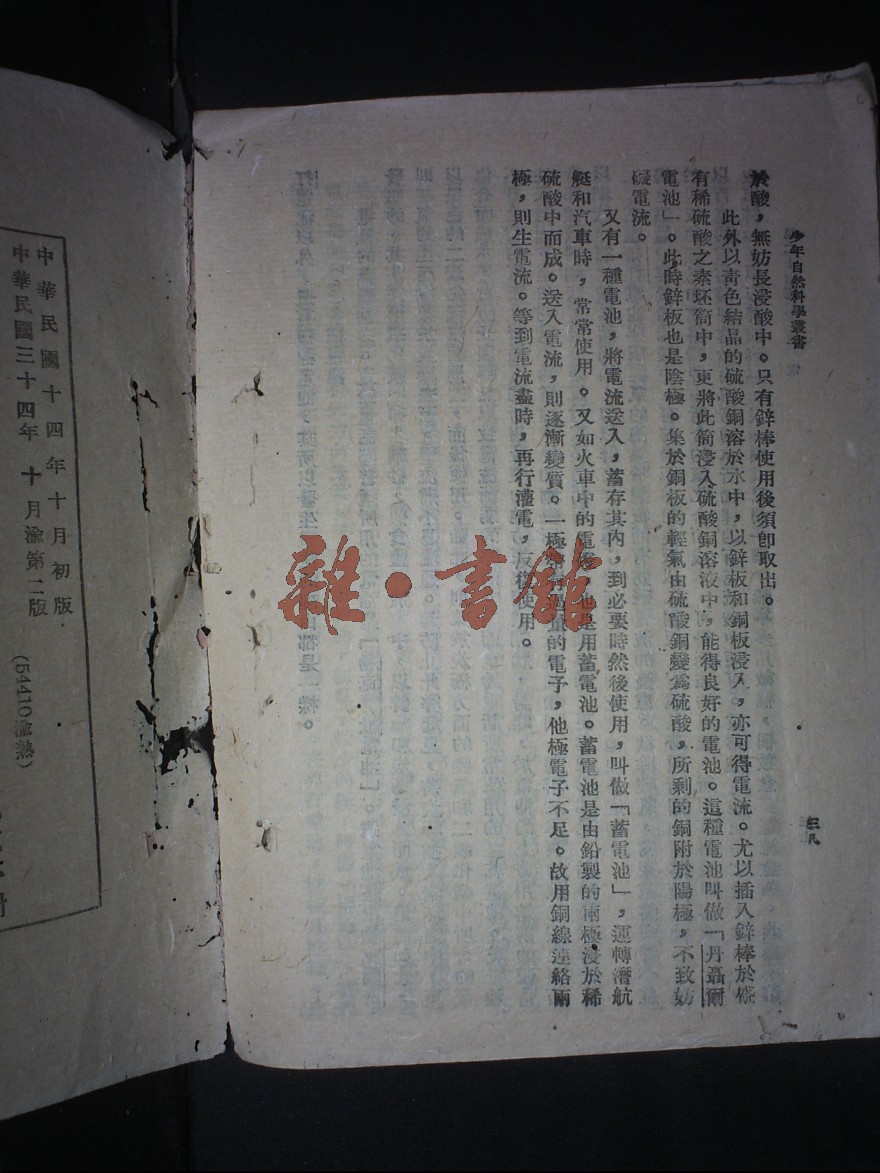 少年自然科學叢書
三八
於酸，無妨長浸酸中。只有鋅棒使用後須卽取出。
此外以靑色結晶的硫酸銅溶於水中，以鋅板和銅板浸入，亦可得電流。尤以插入鋅棒於盛
有稀硫酸之素坯筒中，更將此筒浸入硫酸銅溶液中，能得良好的電池。這種電池叫做「丹聶爾
電池」。此時鋅板也是陰極。集於銅板的輕氣由硫酸銅變爲硫酸，所剩的銅附於陽極，不致妨
礙電流。
又有一種電池，將電流送入，蓄存其內，到必要時然後使用，叫做「蓄電池」，運轉潛航
艇和汽車時，常常使用。又如火車中的電燈，也是用蓄電池。蓄電池是由鉛製的兩極浸於稀
硫酸中而成。送入電流，則逐漸變質。一極 的電子，他極電子不足。故用銅線連絡兩
極，則生電流。等到電流盡時，再行灌電，反復使用。
中華民國十四年十月初版
中華民國三十四年十月渝第二版
(54410渝熟)
雜·書館